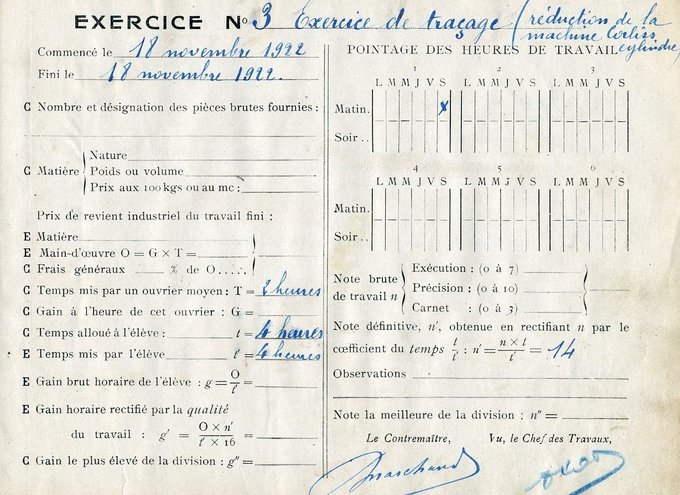 EXERCICE No 3 Exercice de traçage (réduction de la
machine Corliss
cylindre)
Commencé le 18 novembre 1922
Fini le 18 novembre 1922.
C Nombre et désignation des pièces brutes fournies :
C Matière
Nature
Poids ou volume
Prix aux 100 kgs ou au mc :
Prix de revient industriel du travail fini :
E Matière
E Main-d'œuvre O = G × T =
C Frais généraux % de O
C Temps mis par un ouvrier moyen : T = 2 heures
C Gain à l'heure de cet ouvrier : G =
C Temps alloué à l'élève : t = 4 heures
E Temps mis par l'élève t' = 4 heures
E Gain brut horaire de l'élève : g = O/t' =
E Gain horaire rectifié par la qualité
du travail : g' = O × n' / t' × 16 =
C Gain le plus élevé de la division : g" =
POINTAGE DES HEURES DE TRAVAIL
1 2 3
L M M J V S L M M J V S L M M J V S
Matin. x
Soir ..
4 5 6
L M M J V S L M M J V S L M M J V S
Matin.
Soir ..
Note brute
de travail n
Exécution : (0 à 7)
Précision : (0 à 10)
Carnet : (0 à 3)
Note définitive, n', obtenue en rectifiant n par le
coefficient du temps t/t' : n' = n × t / t' = 14
Observations
Note la meilleure de la division : n" =
Le Contremaître, Vu, le Chef des Travaux,
Marchand